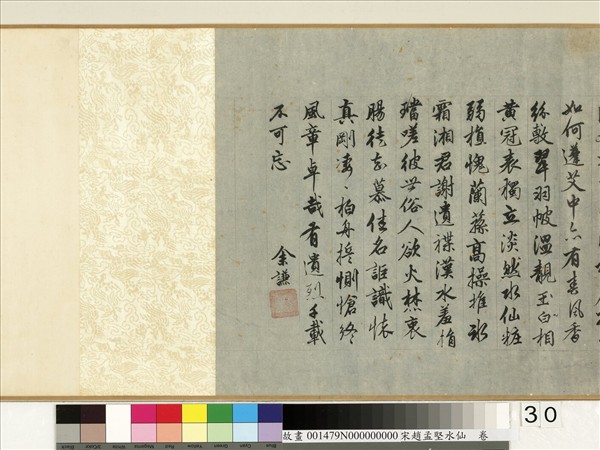 如何蓬艾中亦有春風香
紛敷翠羽帔溫靚玉白相
黃冠表獨立淡然水仙粧
弱植愧蘭蓀高操摧冰
霜湘君謝遺褋漢水羞捐
璫嗟彼世俗人欲火焚衷
腸徒知慕佳名詎識懷
真剛凄〻柏舟誓惻愴終
風章卓哉有遺烈千載
不可忘
余謙
30
故畫 001479N000000000 宋趙孟堅水仙 卷
Black
White
Magenta
Red
Yellow
Green
Cyan
Blue